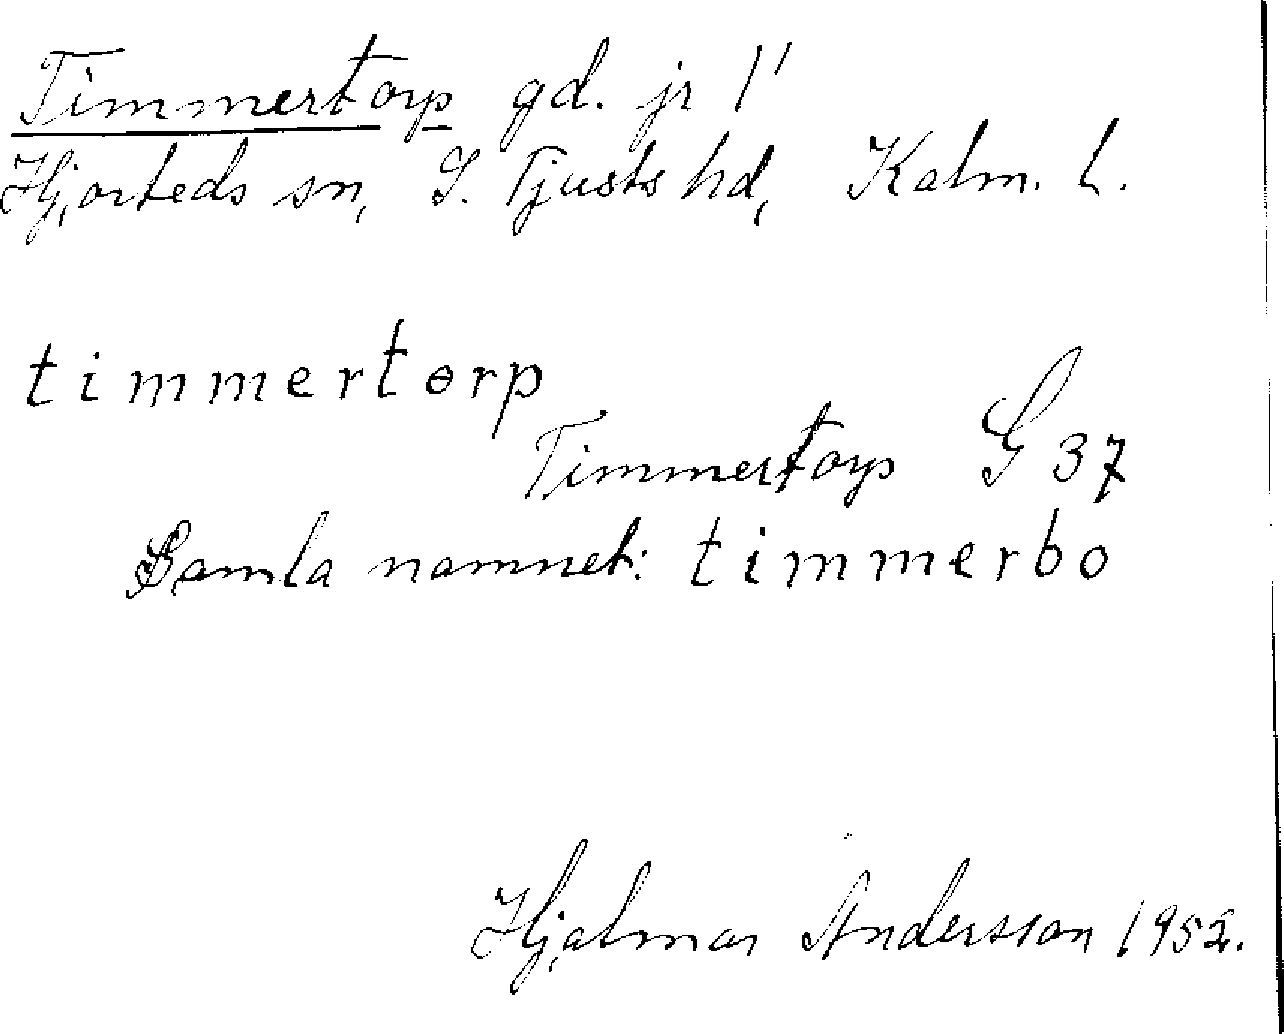 Timmertorp gd. jr 1'
Hjorteds sn, S. Tjusts hd, Kalm. l.
timmertorp
Timmertorp G 37
Gamla namnet: timmerbo
Hjalmar Andersson 1952.